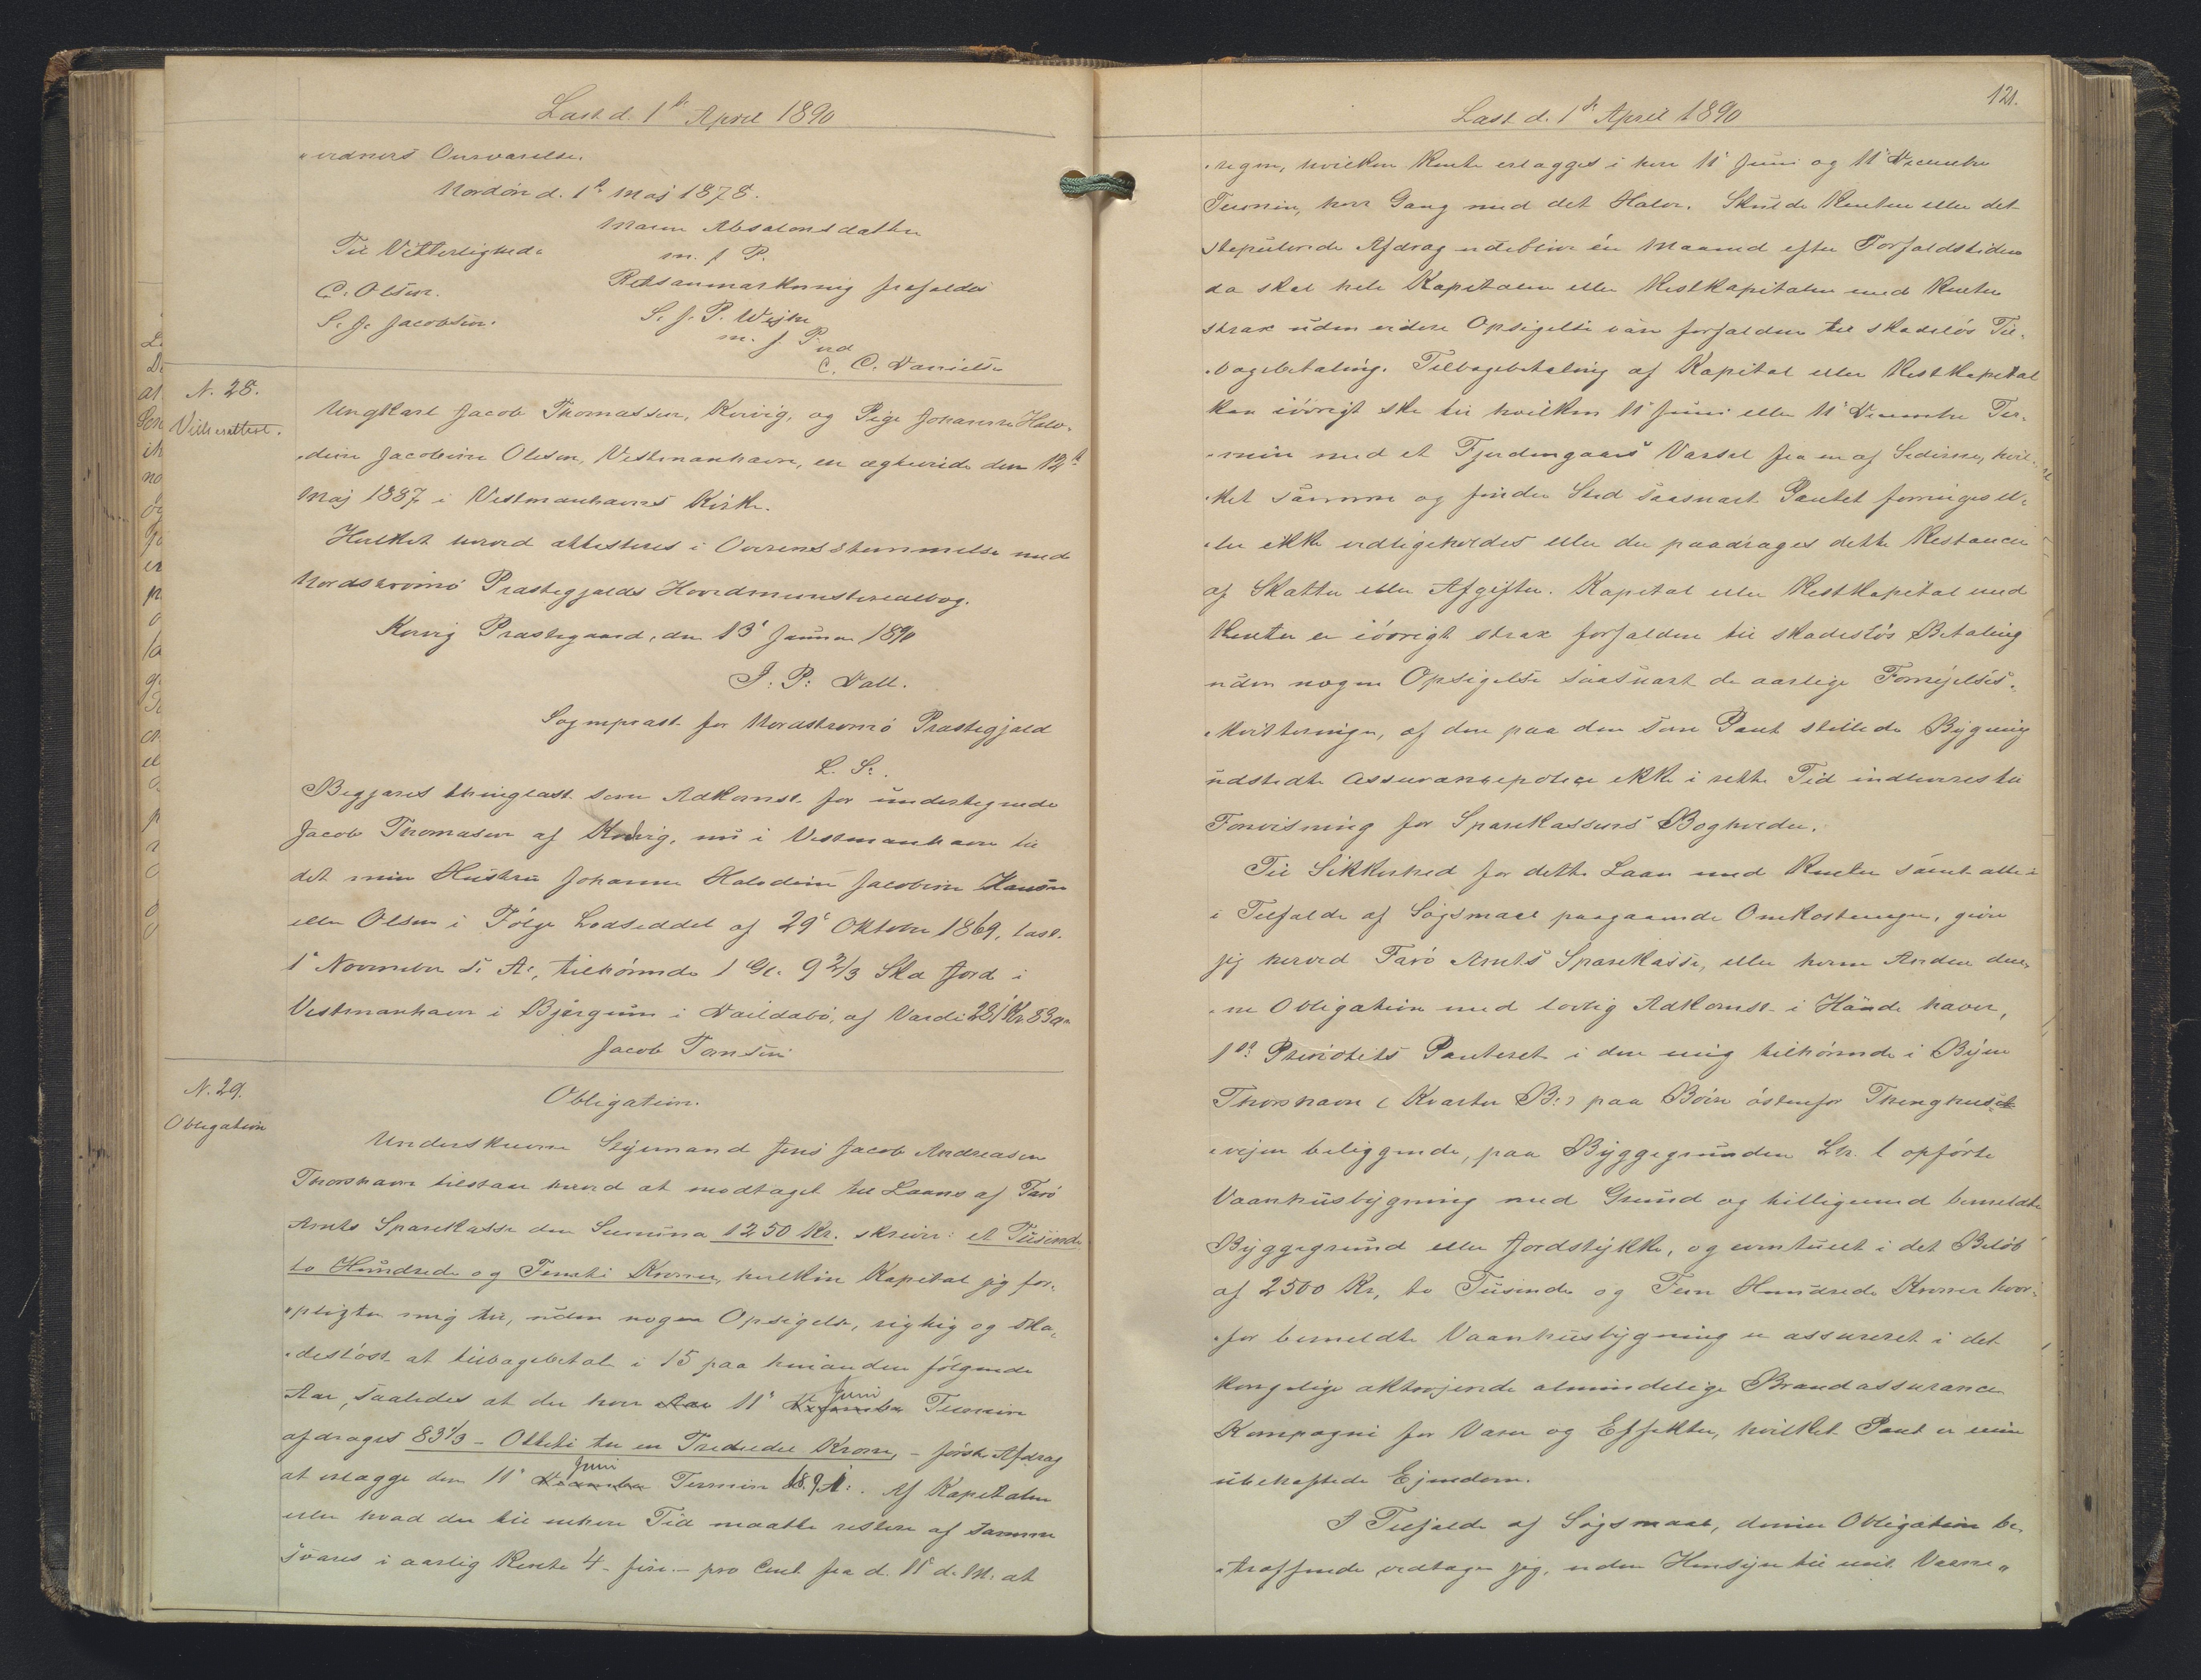 Læst d. 1ste April 1890
"ordners Overværelse.
Nordøn d. 1ste Maj 1878.
Maren Absalonsdatter
Til Vitterlighed: m. f. P.
C. Olsen. Retsanmærkning frafaldes
S. J. Jacobsen. S. J. P. Wejhe
m. f. P. ved
C. C. Danielsen
N. 28.
Vielsesattest.
Ungkarl Jacob Thomassen, Kvivig, og Pige Johanne Halv-
"dine Jacobine Olesen, Vestmanhavn, ere ægteviede den 12te
Maj 1887 i Vestmanhavns Kirke.
Hvilket herved attesteres i Overensstemmelse med
Nordstrømø Præstegjelds Hovedministerialbog.
Kvivig Præstegaard, den 13' Januar 1890
J: P: Dall.
Sognepræst for Nordstrømø Præstegjeld
L. S.
Begjæres thinglæst som Adkomst for undertegnede
Jacob Thomasen af Kvivig, nu i Vestmanhavn til
det min Hustru Johanne Halvdine Jacobine Hansen
eller Olsen i Følge Lodseddel af 29' Oktober 1869, læst
1' November s. A., tilhørende 1 Gl. 9 2/3 Skd Jord i
Vestmanhavn i Bjærgum i Vaildabø, af Værdi 281 Kr. 83 Ør.
Jacob Tomsen
N. 29.
Obligation
Obligation.
Underskrevne Styrmand Jens Jacob Andreasen
Thorshavn tilstaar herved at modtaget til Laans af Færø
Amts Sparekasse den Summa 1250 Kr. skriver: et Tusinde
to Hundrede og Femti Kroner, hvilken Kapital jeg for-
"pligter mig til, uden nogen Opsigelse, rigtig og ska-
"desløst at tilbagebetale i 15 paa hinanden følgende
Aar, saaledes at der hver Aar 11' December Juni Termin
afdrages 83 1/3 - Otteti tre en Trediedel Krone, - første Afdrag
at erlægge den 11' December Juni Termin 1891:. Af Kapitalen
eller hvad der til enhver Tid maatte restere af samme
svares i aarlig Rente 4 - fire - pro Cent fra d. 11' d. M. at
121.
Læst d. 1ste April 1890
"regne, hvilken Rente erlægges i hver 11' Juni og 11' December
Termin, hver Gang med det Halve. Skulde Renten eller det
stipulerede Afdrag udeblive én Maaned efter Forfaldstiden
da skal hele Kapitalen eller Restkapitalen med Renter
strax uden videre Opsigelse være forfalden til skadesløs Til-
"bagebetaling. Tilbagebetaling af Kapital eller Restkapital
kan iøvrigt ske til hvilken 11' Juni eller 11' December Ter-
"min med et Fjerdingaars Varsel fra en af Siderne, hvil-
"ket samme og finder Sted saasnart Pantet forringes el-
"ler ikke vedligeholdes eller der paadrages dette Restancer
af Skatter eller Afgifter. Kapital eller Restkapital med
Renter er iøvrigt strax forfalden til skadesløs Betaling
uden nogen Opsigelse saasnart de aarlige Fornyelses-
"kvitteringer, af den paa den som Pant stillede Bygning
udstedte Assurancepolice ikke i rette Tid indleveres til
Forevisning for Sparekassens Bogholder.
Til Sikkerhed for dette Laan med Renter samt alle
i Tilfælde af Søgsmaal paagaaende Omkostninger, giver
jeg herved Færø Amts Sparekasse, eller hvem Anden den-
"ne Obligation med lovlig Adkomst i Hænde haver,
1ste Prioritets Panteret i den mig tilhørende i Byen
Thorshavn (Kvarter B:) paa Bøen østenfor Thinghuset
"vejen beliggende, paa Byggegrunden Ltr. l opførte
Vaanhusbygning med Grund og tilligemed bemeldte
Byggegrund eller Jordstykke, og eventuelt i det Beløb
af 2500 Kr, to Tusinde og Fem Hundrede Kroner hvor-
"for bemeldte Vaanhusbygning er assureret i det
kongelige oktrojerede almindelige Brandassurance
Kompagni for Varer og Effekter, hvilket Pant er min
ubehæftede Ejendom.
I Tilfælde af Søgsmaal, denne Obligation be-
"træffende vedtager jeg, uden Hensyn til mit Værne"